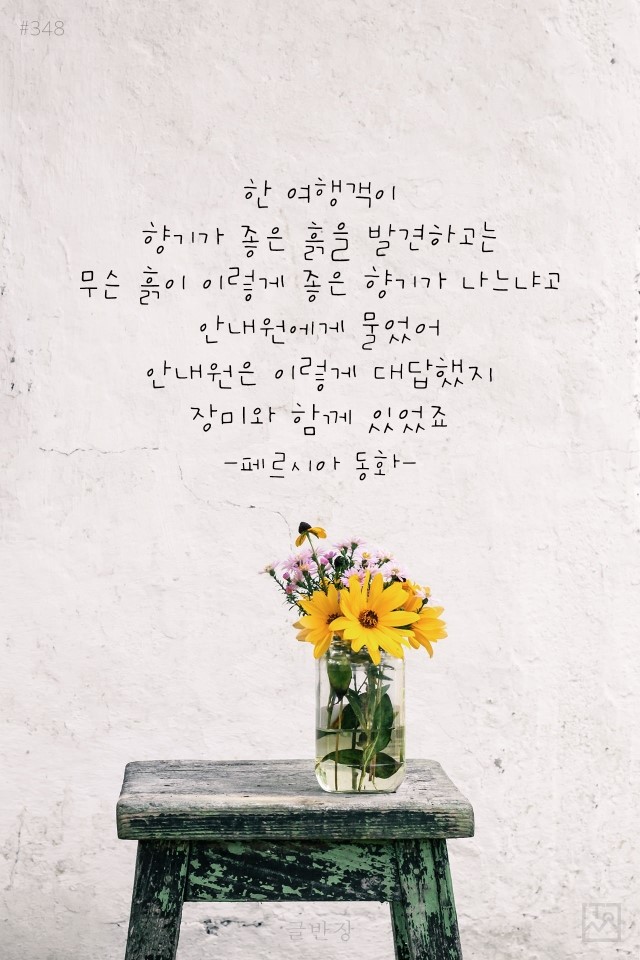 #348
한 여행객이
향기가 좋은 흙을 발견하고는
무슨 흙이 이렇게 좋은 향기가 나느냐고
안내원에게 물었어
안내원은 이렇게 대답했지
장미와 함께 있었죠
-페르시아 동화-
글반장